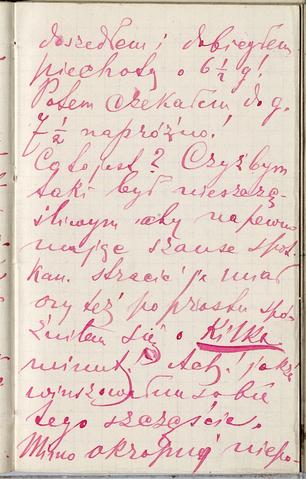 doszedłem i dobiegłem
piechotą o 6½ g!
Potem czekałem do g.
7½ napróżno!
Co to jest? Czyżbym
taki był nieszczę-
śliwym, aby napewno
mając szanse spot-
kan. stracić ją miał
czy też po prostu spó-
źniłem się o kilka
minut! Ach! jakże
winszowałem sobie
tego szczęście.
Mimo okropnej niepo-